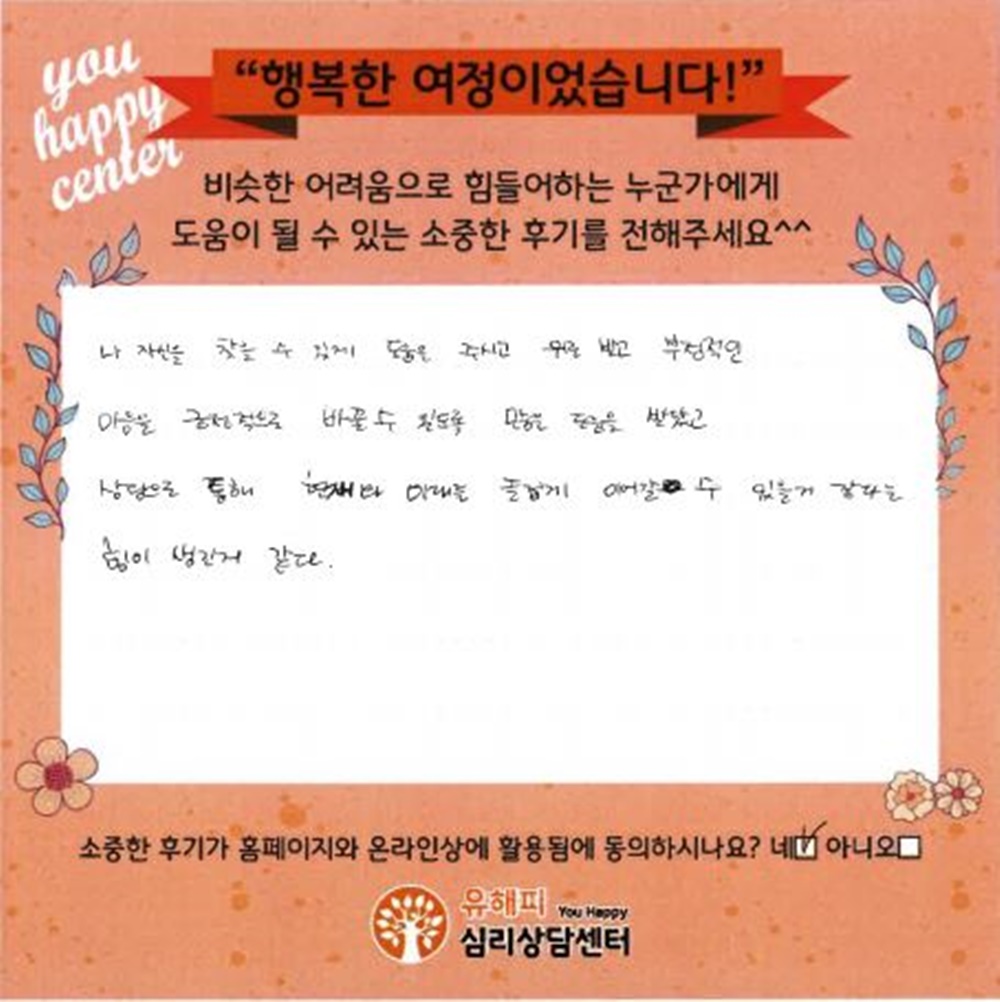 you
happy
center
“행복한 여정이었습니다!”
비슷한 어려움으로 힘들어하는 누군가에게
도움이 될 수 있는 소중한 후기를 전해주세요^^
나 자신을 찾을 수 있게 도움을 주시고 위로 받고 부정적인
마음을 긍정적으로 바꿀 수 있도록 많은 도움을 받았고
상담으로 통해 현재와 미래를 즐겁게 이어갈 수 있을거 같다는
힘이 생긴거 같다.
소중한 후기가 홈페이지와 온라인상에 활용됨에 동의하시나요? 네☑ 아니오☐
유해피 You Happy
심리상담센터